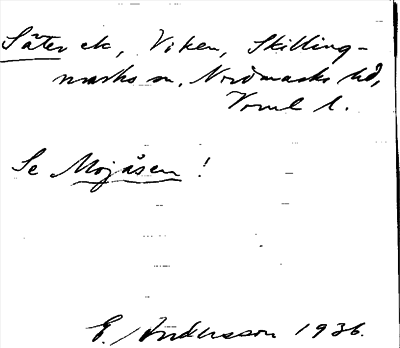 Säter ek, Viken, Skilling-
marks sn, Nordmarks hd,
Värml l.
Se Mojåsen!
E. Andersson 1936.